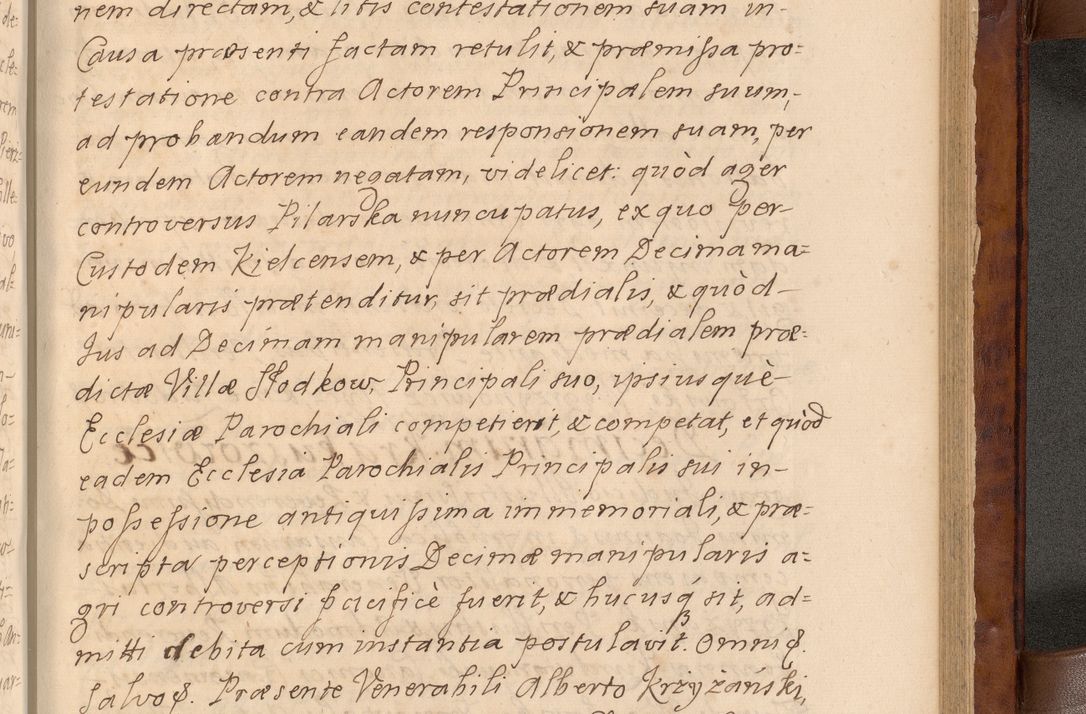 nem directam, & litis contestationem suam in-
Causa præsenti factam retulit, & præmissa pro=
testatione contra Actorem Principalem suum,
ad probandum eandem responsionem suam, per
eundem Actorem negatam, videlicet: quòd ager
controversus Pilarska nuncupatus, ex quo per-
Custodem Kielcensem, & per Actorem Decima ma=
nipularis prætenditur, sit prædialis, & quòd-
Jus ad Decimam manipularem prædialem præ=
dictæ Villæ Słodkow, Principali suo, ipsiusquè-
Ecclesiæ Parochiali competierit, & competat, et quòd
eadem Ecclesia Parochialis Principalis sui in-
possessione antiquissima immemoriali, & præ-
scripta perceptionis Decimæ manipularis a=
gri controversi pacificè fuerit, & hucusq3 sit, ad=
mitti debita cum instantia postulavit. Omni
salvo. Præsente Venerabili Alberto Krzyżański,